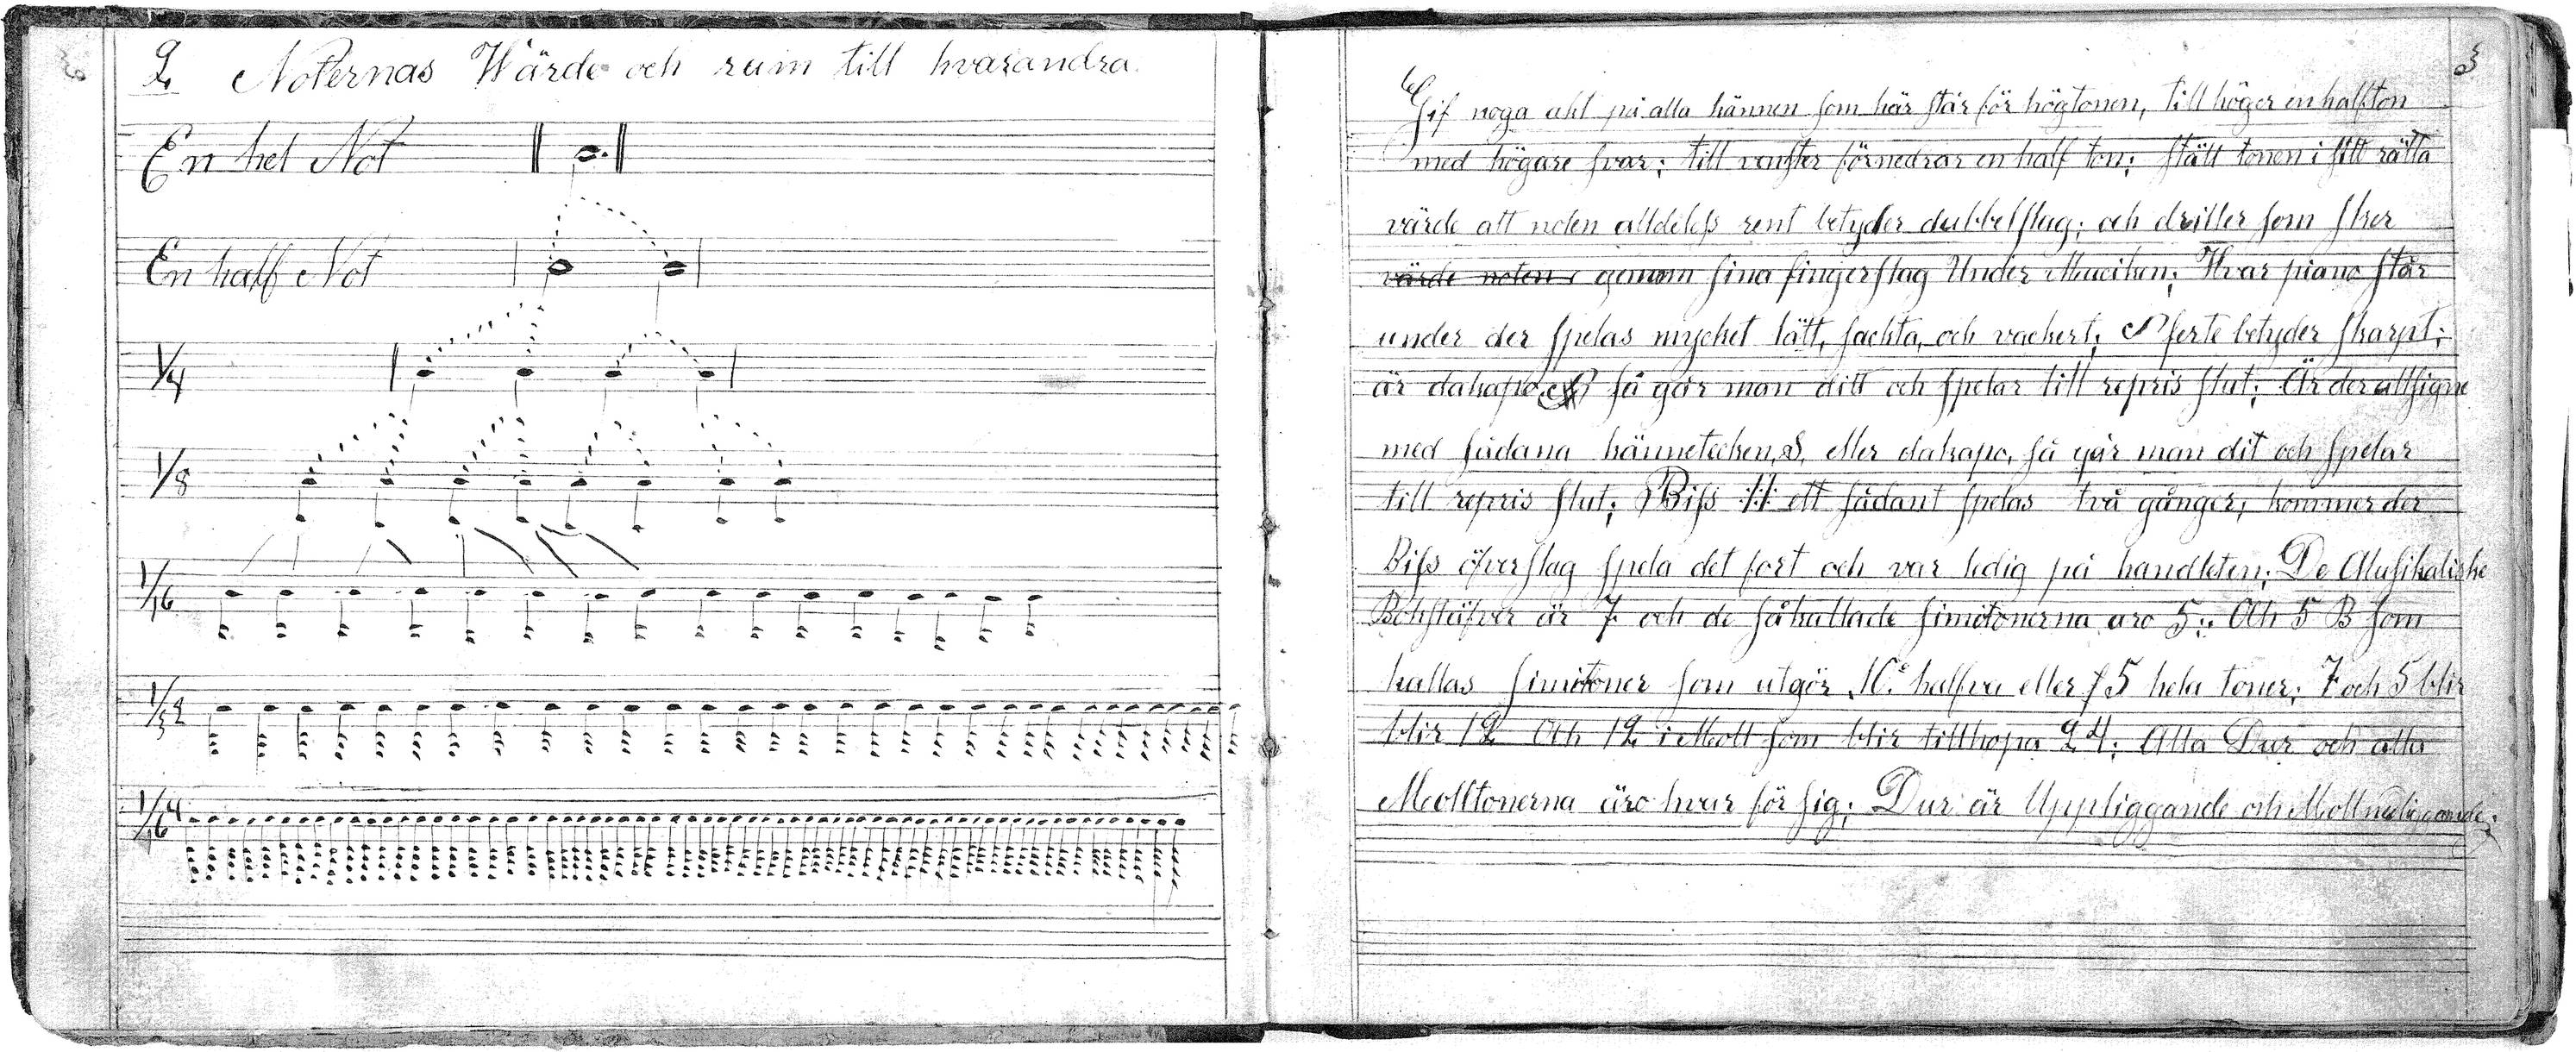 2 Noternas Wärde och rum till hvarandra.
En het Not
En half Not
1/4
1/8
1/16
1/32
1/64
3
Gif noga akt på alla kännen som här står för högtonen, till höger en half ton
med högare svar; till venster förnedrar en half ton; stält tonen i sitt rätta
värde att noten alldeless rent betyder dubbelslag; och driller som sker
värde noten genom sina fingerslag Under Musiken; Hvar piano står
under der spelas mycket lätt, sackta, och vackert; ferte betyder skarpt;
är dakapo så går man ditt och spelar till repris slut; Är der altsigne
med sådana känneteken, S, eller dakapo, så går man dit och spelar
till repris slut; Biss :/: ett sådant spelas två gånger; kommer der
Biss öfverslag spela det fort och var ledig på handleten; De Musikaliske
Bokstäfver är 7 och de såkallade simitonerna äro 5; Och 5 B som
kallas simitoner som utgör 10 halfva eller 5 hela toner; 7 och 5 blir
blir 12 Och 12 i Moll som blir tillhopa 24; Alla Dur och alla
Molltonerna äro hvar för sig; Dur är Uppliggande och Moll nedliggande;